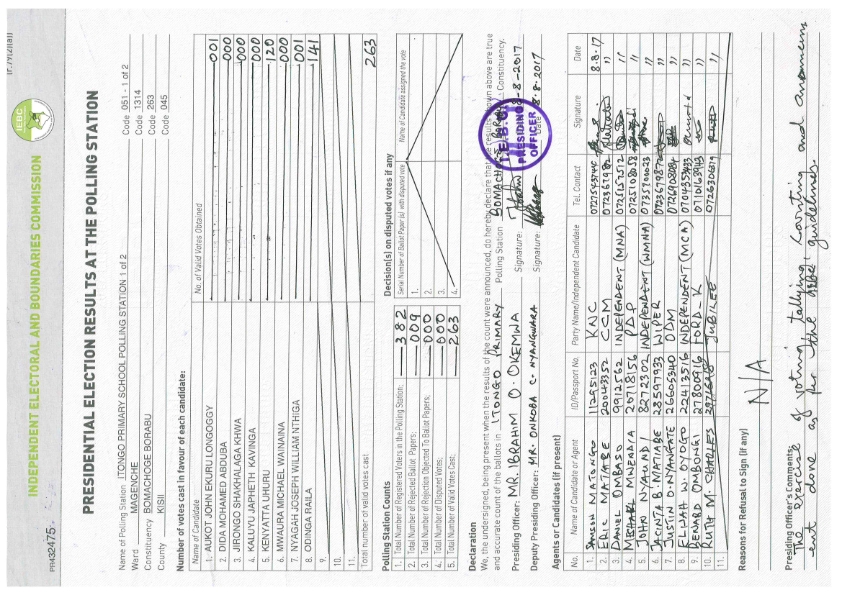 INDEPENDENT ELECTORAL AND BOUNDARIES COMMISSION
IEBC
PR432475
PRESIDENTIAL ELECTION RESULTS AT THE POLLING STATION
Name of Polling Station ITONGO PRIMARY SCHOOL POLLING STATION 1 of 2 Code 051 - 1 of 2
Ward MAGENCHE Code 1314
Constituency BOMACHOGE BORABU Code 263
County KISII Code 045
Number of votes cast in favour of each candidate:
Name of Candidate No. of Valid Votes Obtained
1. AUKOT JOHN EKURU LONGOGGY 001
2. DIDA MOHAMED ABDUBA 000
3. JIRONGO SHAKHALAGA KHWA 000
4. KALUYU JAPHETH KAVINGA 000
5. KENYATTA UHURU 120
6. MWAURA MICHAEL WAINAINA 000
7. NYAGAH JOSEPH WILLIAM NTHIGA 001
8. ODINGA RAILA 141
9.
10.
11.
Total number of valid votes cast 263
Polling Station Counts
1. Total Number of Registered Voters in the Polling Station: 382
2. Total Number of Rejected Ballot Papers: 009
3. Total Number of Rejection Objected To Ballot Papers: 000
4. Total Number of Disputed Votes: 000
5. Total Number of Valid Votes Cast: 263
Decision(s) on disputed votes if any
Serial Number of Ballot Paper (s) with disputed vote Name of Candidate assigned the vote
1.
2.
3.
4.
Declaration
We, the undersigned, being present when the results of the count were announced, do hereby declare that the results shown above are true
and accurate count of the ballots in ITONGO PRIMARY Polling Station BOMACHOGE BORABU Constituency.
Presiding Officer: MR. IBRAHIM O. OKEMWA Signature: 8-8-2017
Deputy Presiding Officer: MR. ONKOBA C. NYANGWARA Signature: Date 8.8.2017
I.E.B.C.
PRESIDING
OFFICER
Agents or Candidates (if present)
No. Name of Candidate or Agent ID/Passport No. Party Name/Independent Candidate Tel. Contact Signature Date
1. SAMSON MATONGO 11255123 KNC 8.8.17
2. ERIC MATIABE 20043352 CCM "
3. DANIEL OMBASO 9912562 INDEPENDENT (MNA) 0725157512 "
4. 20118156 PDP 0725108058 "
5. JOHN NYAMBATI INDEPENDENT (WMNA) "
6. JACINTA B. MATIABE 28597933 WIPER "
7. JUSTIN O. NYANGATE 26605340 ODM "
8. ELIJAH W. OYOGO 22413516 INDEPENDENT (MCA) "
9. BENARD OMBONGI 27800916 FORD-K "
10. RUTH M. CHARLES JUBILEE 0726306 "
11.
Reasons for Refusal to Sign (if any)
N/A
Presiding Officer's Comments:
The exercise of voting, tallying, counting and announcem
ent done as per the guidelines.